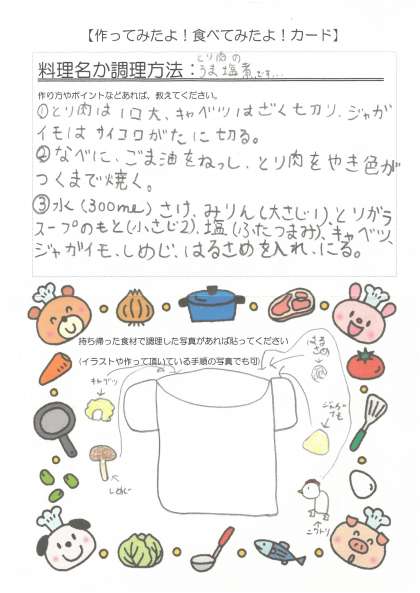 【作ってみたよ!食べてみたよ!カード】
とり肉の
料理名か調理方法:うま塩煮です…
作り方やポイントなどあれば、教えてください。
①とり肉は1口大、キャベツはざく切り、ジャガ
イモはサイコロがたに切る。
②なべに、ごま油をねっし、とり肉をやき色が
つくまで焼く。
③水(300ml)さけ、みりん(大さじ1)、とりガラ
スープのもと(小さじ2)、塩(ふたつまみ)、キャベツ、
ジャガイモ、しめじ、はるさめを入れ、にる。
持ち帰った食材で調理した写真があれば貼ってください
(イラストや作って頂いている手順の写真でも可)
はる
さめ
キャベツ
ジャガ
イモ
しめじ
ニワトリ